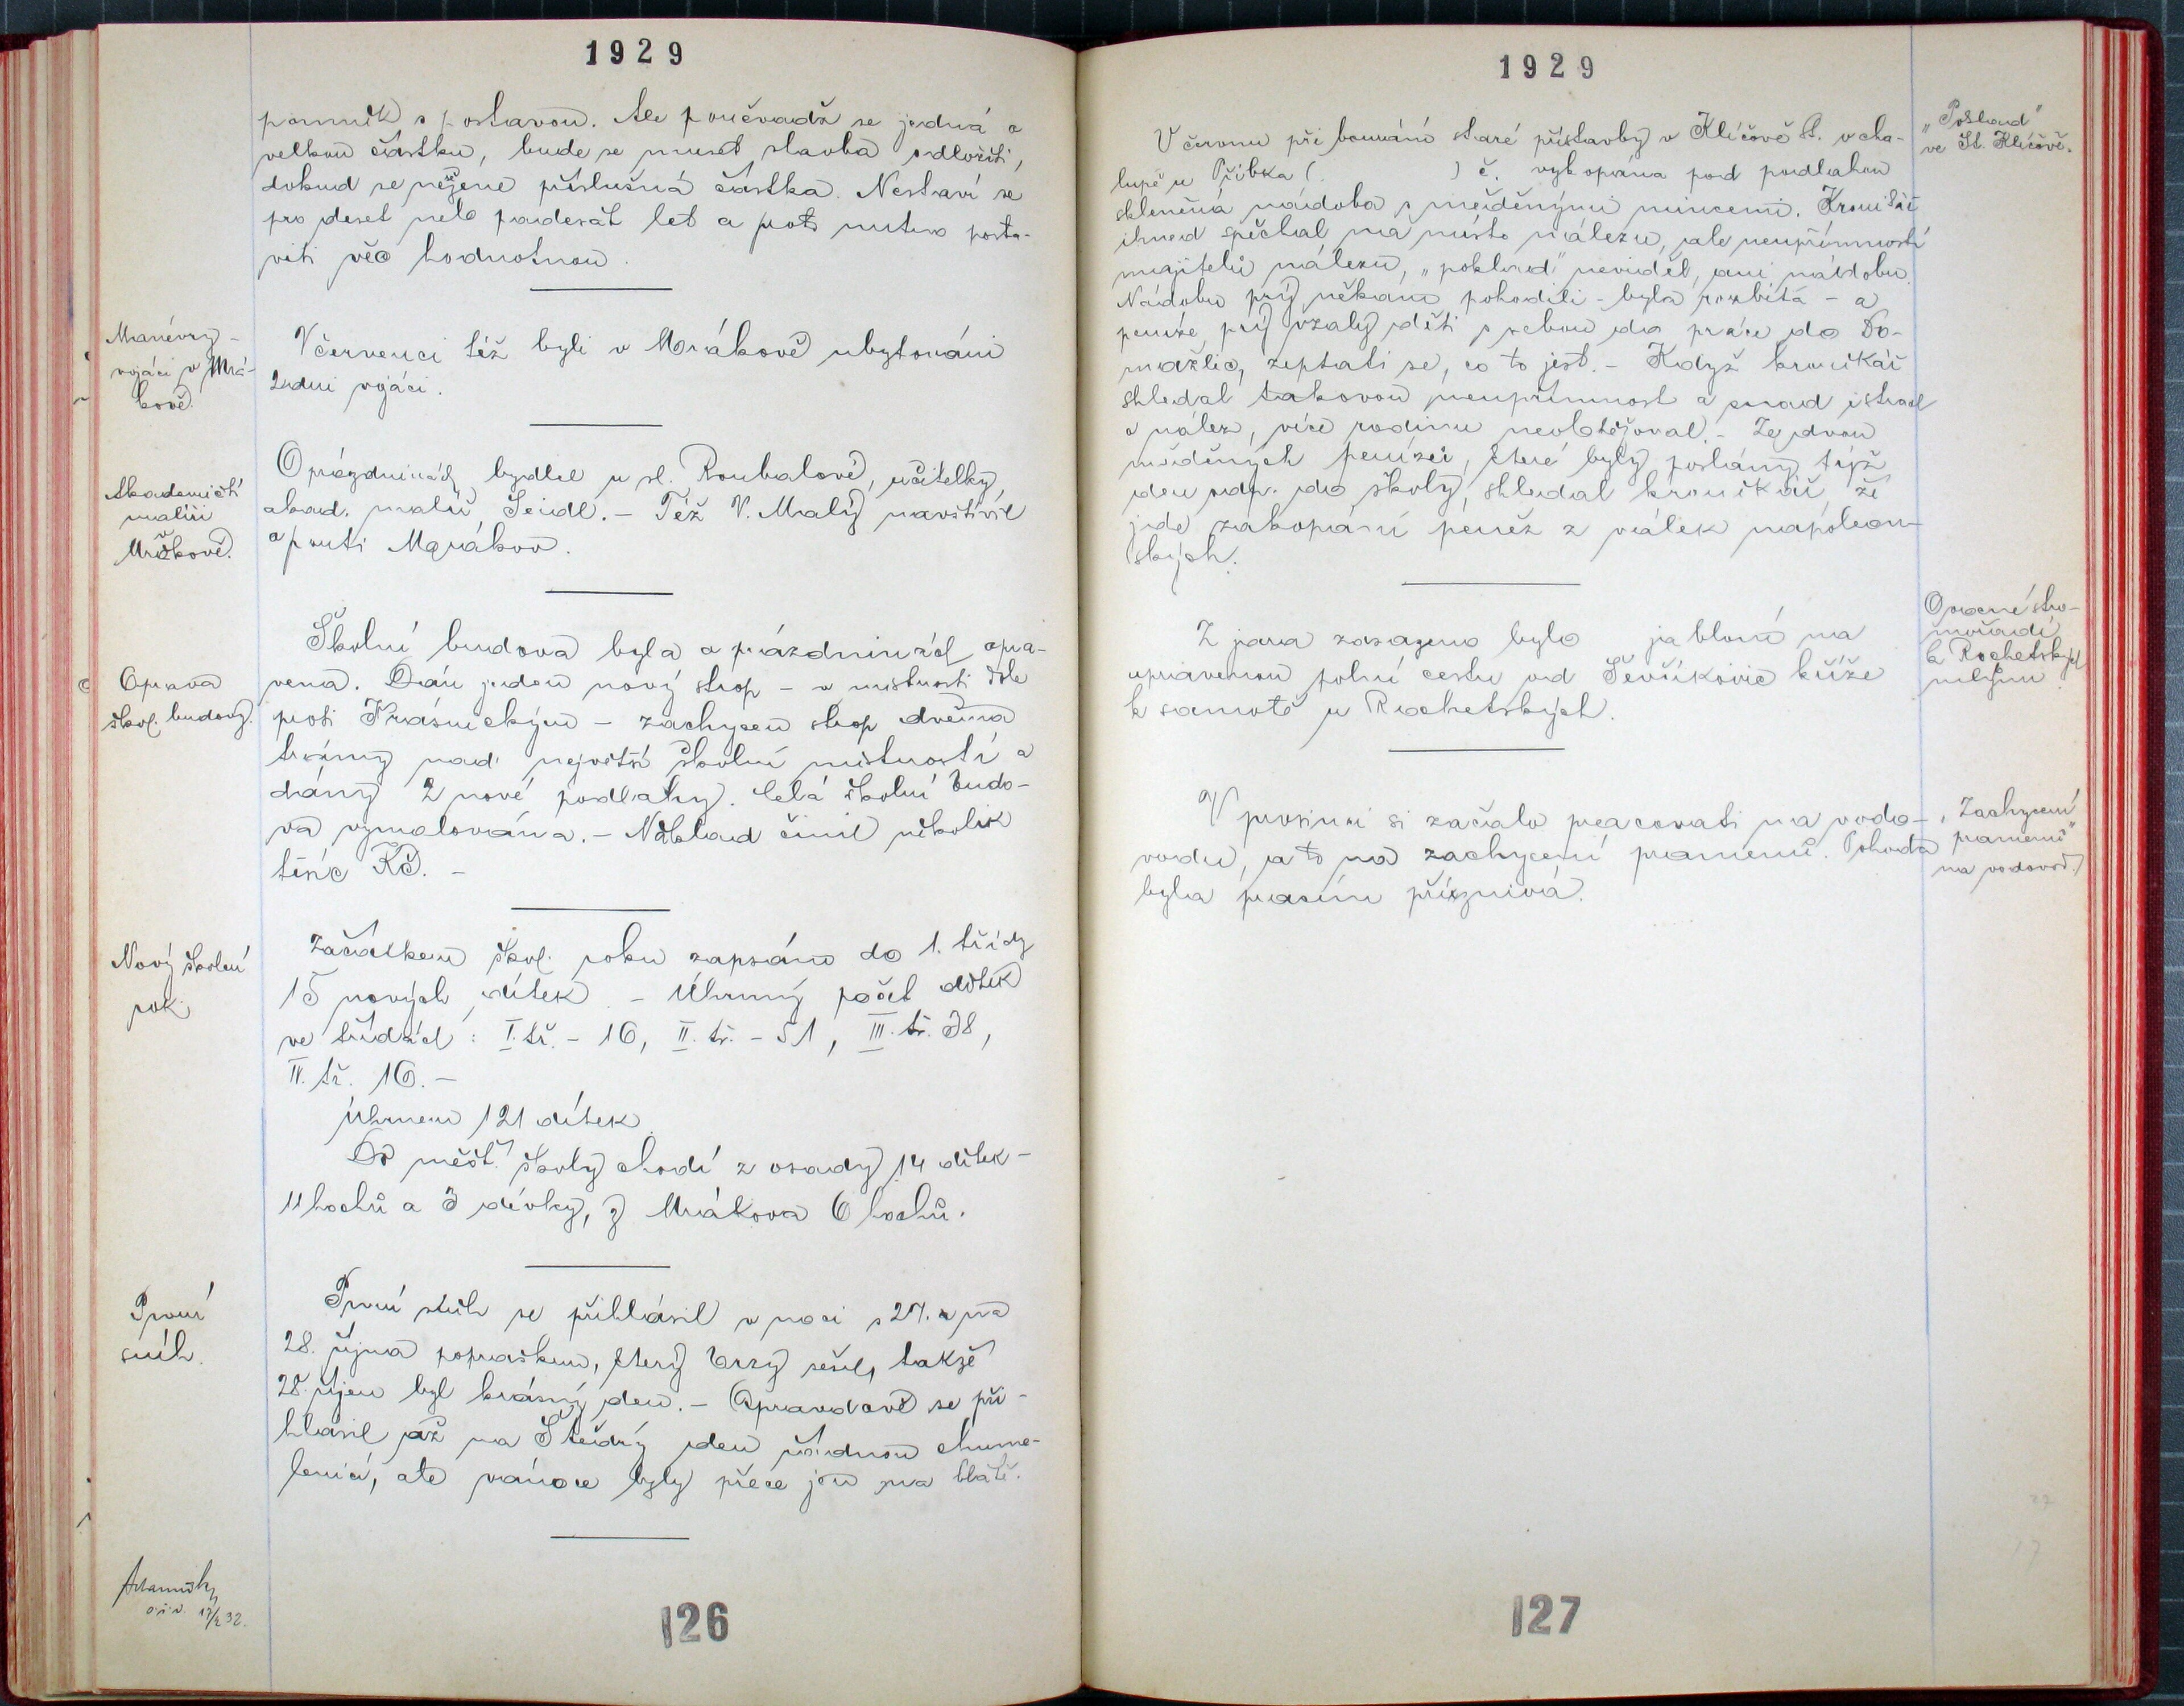 1929
pomník s postavou. Ale poněvadž se jedná o
velkou částku, bude se muset stavba odložiti,
dokud se nesežene příslušná částka. Nestaví se
pro deset nebo padesát let a proto nutno posta-
viti věc hodnotnou.
Manévry -
vojáci v Mrá-
kově.
V červenci též byli v Mrákově ubytováni
2 dni vojáci.
Akademičtí
malíři
v
Mrákově.
O prázdninách bydlel u sl. Roubalové, učitelky
akad. malíř Seidl. - Též V. Malý navštívil
a Mrákov.
Oprava
škol. budovy.
Školní budova byla o prázdninách opra-
vena. Dán jeden nový strop - v místnosti dole
proti Krásnickým - zachycen strop dvěma
trámy nad největší školní místností a
dány 2 nové podlahy. Celá školní budo-
va vymalována. - Náklad činil několik
tisíc Kč. -
Nový školní
rok.
Začátkem škol. roku zapsáno do 1. třídy
15 nových dítek. - Úhrnný počet dítek
ve třídách: I. tř. - 16, II. tř. - 51, III. tř. 38,
IV. tř. 16. -
Úhrnem 121 dítek.
Do měšť. školy chodí z osady 14 dítek -
11 hochů a 3 dívky, z Mrákova 6 hochů.
První
sníh.
První sníh se přihlásil v noci s 27. na
28. října popraškem, který brzy sešel, takže
28. říjen byl krásný den. - Opravdově se při-
hlásil až na Štědrý den řádnou chume-
lenicí, ale vánoce byly přece jen na blátě.
17/2 32.
126
1929
"Poklad"
ve St. Klíčově.
V červnu při bourání staré přístavby v Klíčově St. v cha-
lupě u Přibka ( ) č. vykopána pod podlahou
skleněná nádoba s měděnými mincemi. Kronikář
ihned spěchal na místo nálezu, ale neupřímností
majitelů nálezu, "poklad" neviděl, ani nádobu.
Nádobu prý někam pohodili - byla rozbitá - a
peníze prý vzaly děti s sebou do práce do Do-
mažlic, zeptati se, co to jest. - Když kronikář
shledal takovou neupřímnost a snad i strach
o nález, více rodinu neobtěžoval. - Ze dvou
měděných penízů, které byly poslány týž
den odp. do školy, shledal kronikář, že
jde zakopání peněz z válek napoleon-
ských.
Ovocné stro-
mořadí
k Rochetským
mlýnu.
Z jara zasazeno bylo jabloní na
upravenou polní cestu od Ševčíkovic kříže
k samotě u Rochetských.
"Zachycení
pramenů"
na vodovod.
V prosinci si začalo pracovati na vodo-
vodu, a to na zachycení pramenů. Pohoda
byla prasím příznivá.
127